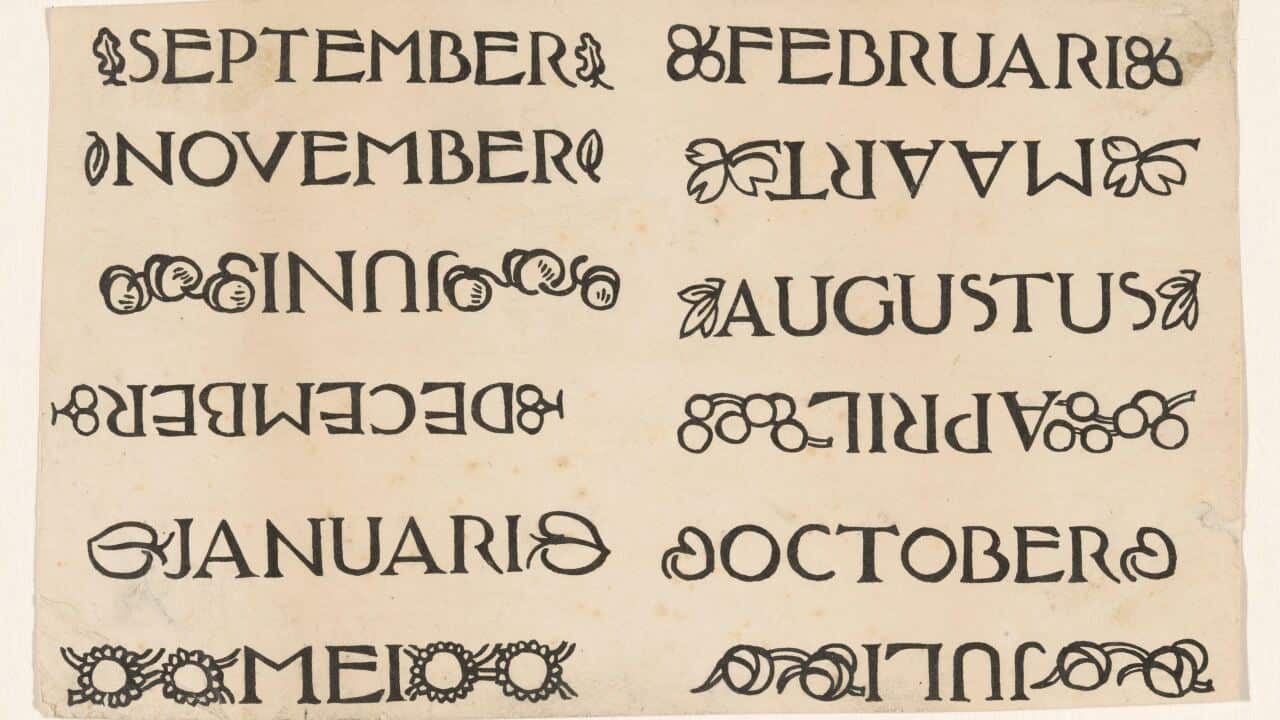 SEPTEMBER
NOVEMBER
JUNI
DECEMBER
JANUARI
MEI
FEBRUARI
MAART
AUGUSTUS
APRIL
OCTOBER
JULI